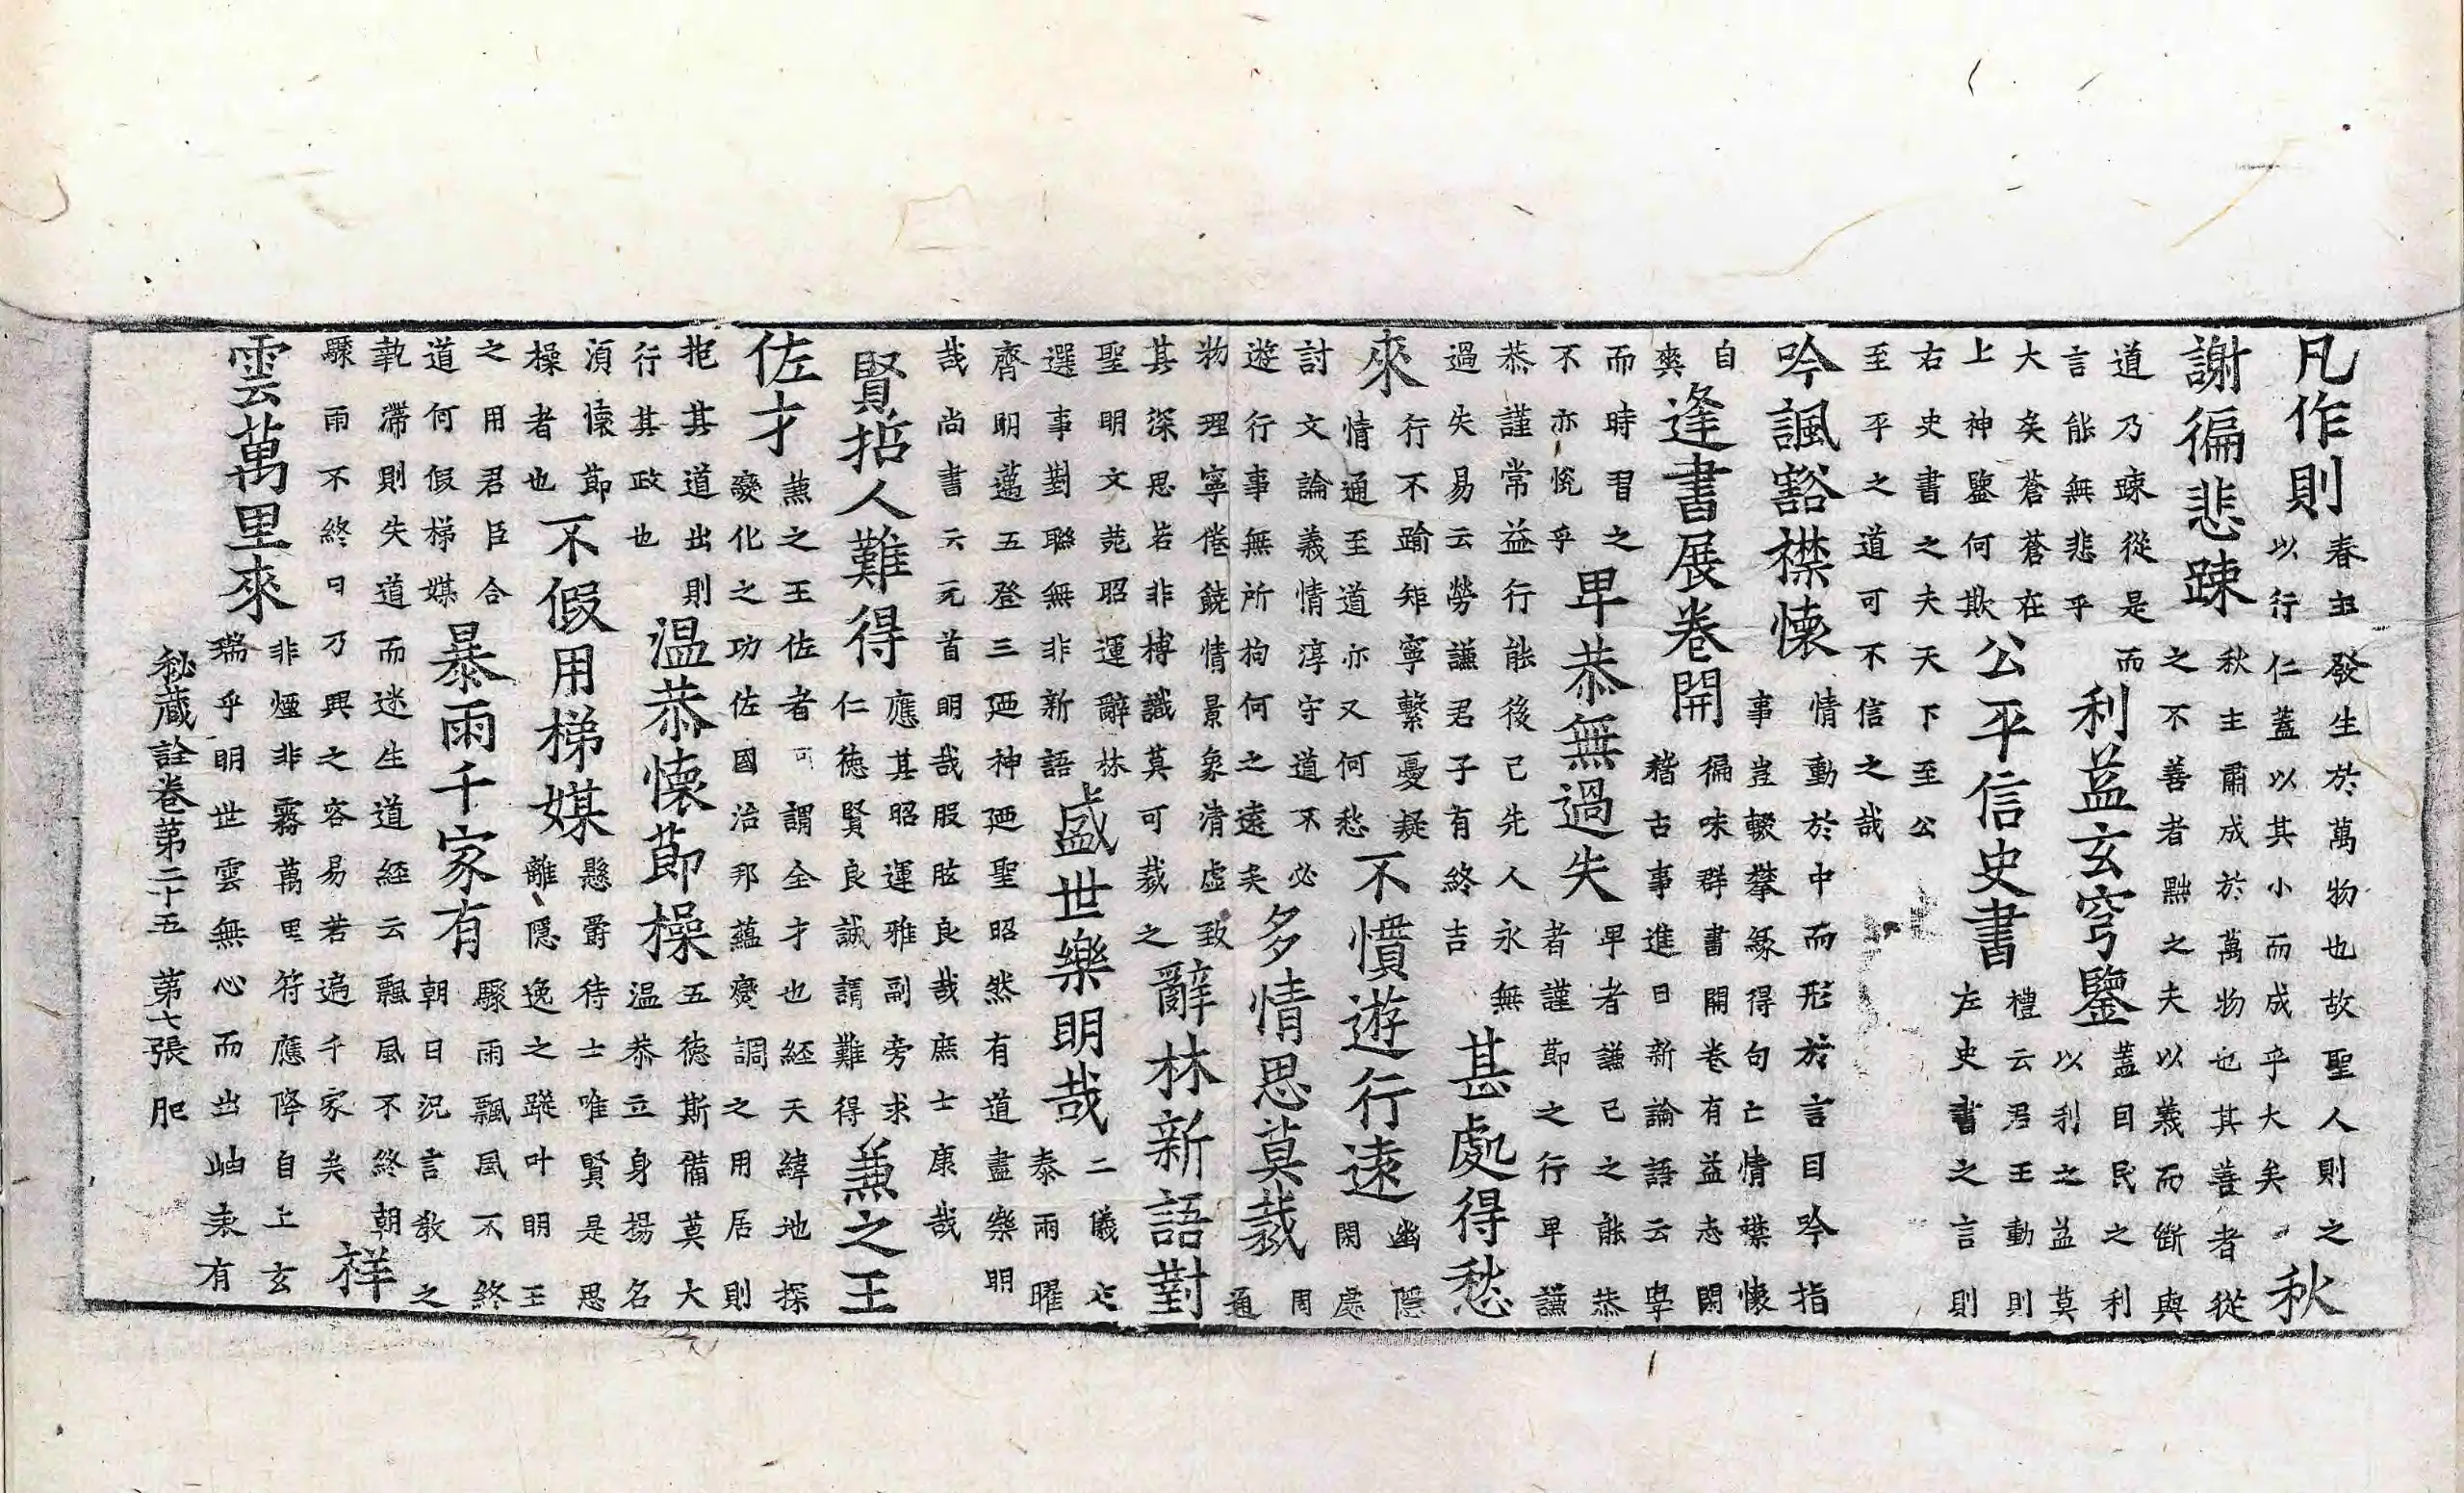 凡作則春主發生於萬物也故聖人則之以行仁蓋以其小而成乎大矣秋
謝徧悲踈秋主肅成於萬物也其善者從之不善者黜之夫以義而斷與
道乃踈從是而言能無悲乎利益玄穹鑒蓋曰民之利以利之益莫
大矣蒼蒼在上神鑒何欺公平信史書禮云君王動則左史書之言則
右史書之夫天下至公至乎之道可不信之哉
吟諷豁襟懷情動於中而形於言目吟指事豈輟攀緣得句亡情襟懷
自爽逢書展卷開徧味群書開卷有益志閑稽古事進日新論語云學
而時習之不亦悅乎卑恭無過失卑者謙己之能恭者謹節之行卑謙
恭謹常益行能後己先人永無過失易云勞謙君子有終吉甚處得愁
來行不踰矩寧繫憂疑情通至道亦又何愁不慣遊行遠幽隱閑處
討文論義情淳守道不必遊行事無所拘何之遠矣多情思莫裁周通
物理寧倦饒情景象清虛致其深思若非博識莫可裁之辭林新語對
聖明文苑昭運辭林選事對聯無非新語盛世樂明哉二儀交泰兩曜
齊明邁五登三廼神廼聖昭然有道盡樂明哉尚書云元首明哉股肱良哉庶士康哉
賢哲人難得應其昭運雅副旁求仁德賢良誠謂難得兼之王
佐才兼之王佐者可謂全才也經天緯地探變化之功佐國治邦蘊爕調之用居則
抱其道出則行其政也温恭懷節操五德斯備莫大温恭立身揚名
須懷節操者也不假用梯媒懸爵待士唯賢是思離隱逸之蹤叶明王
之用君臣合道何假梯媒暴雨千家有驟雨飄風不終朝日況言教之
執滯則失道而迷生道經云飄風不終朝驟雨不終日乃興之容易若遍千家矣祥
雲萬里來非煙非霧萬里符應降自上玄瑞乎明世雲無心而出岫來有
秘藏詮卷第二十五 第七張 肥